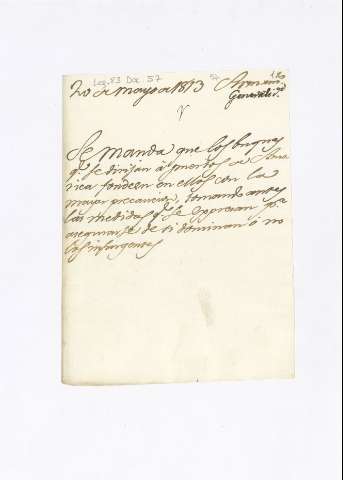 Leg. 83 Doc. 57
20 de mayo de 1813
Generalid.d
Se manda que los buques
q.e se dirijan à puertos de Ame
rica fondeen en ellos con la
mayor precaucion, tomando antes
las medidas q.e se expresan p.a
asegurarse de si dominan ò no
los insurgentes